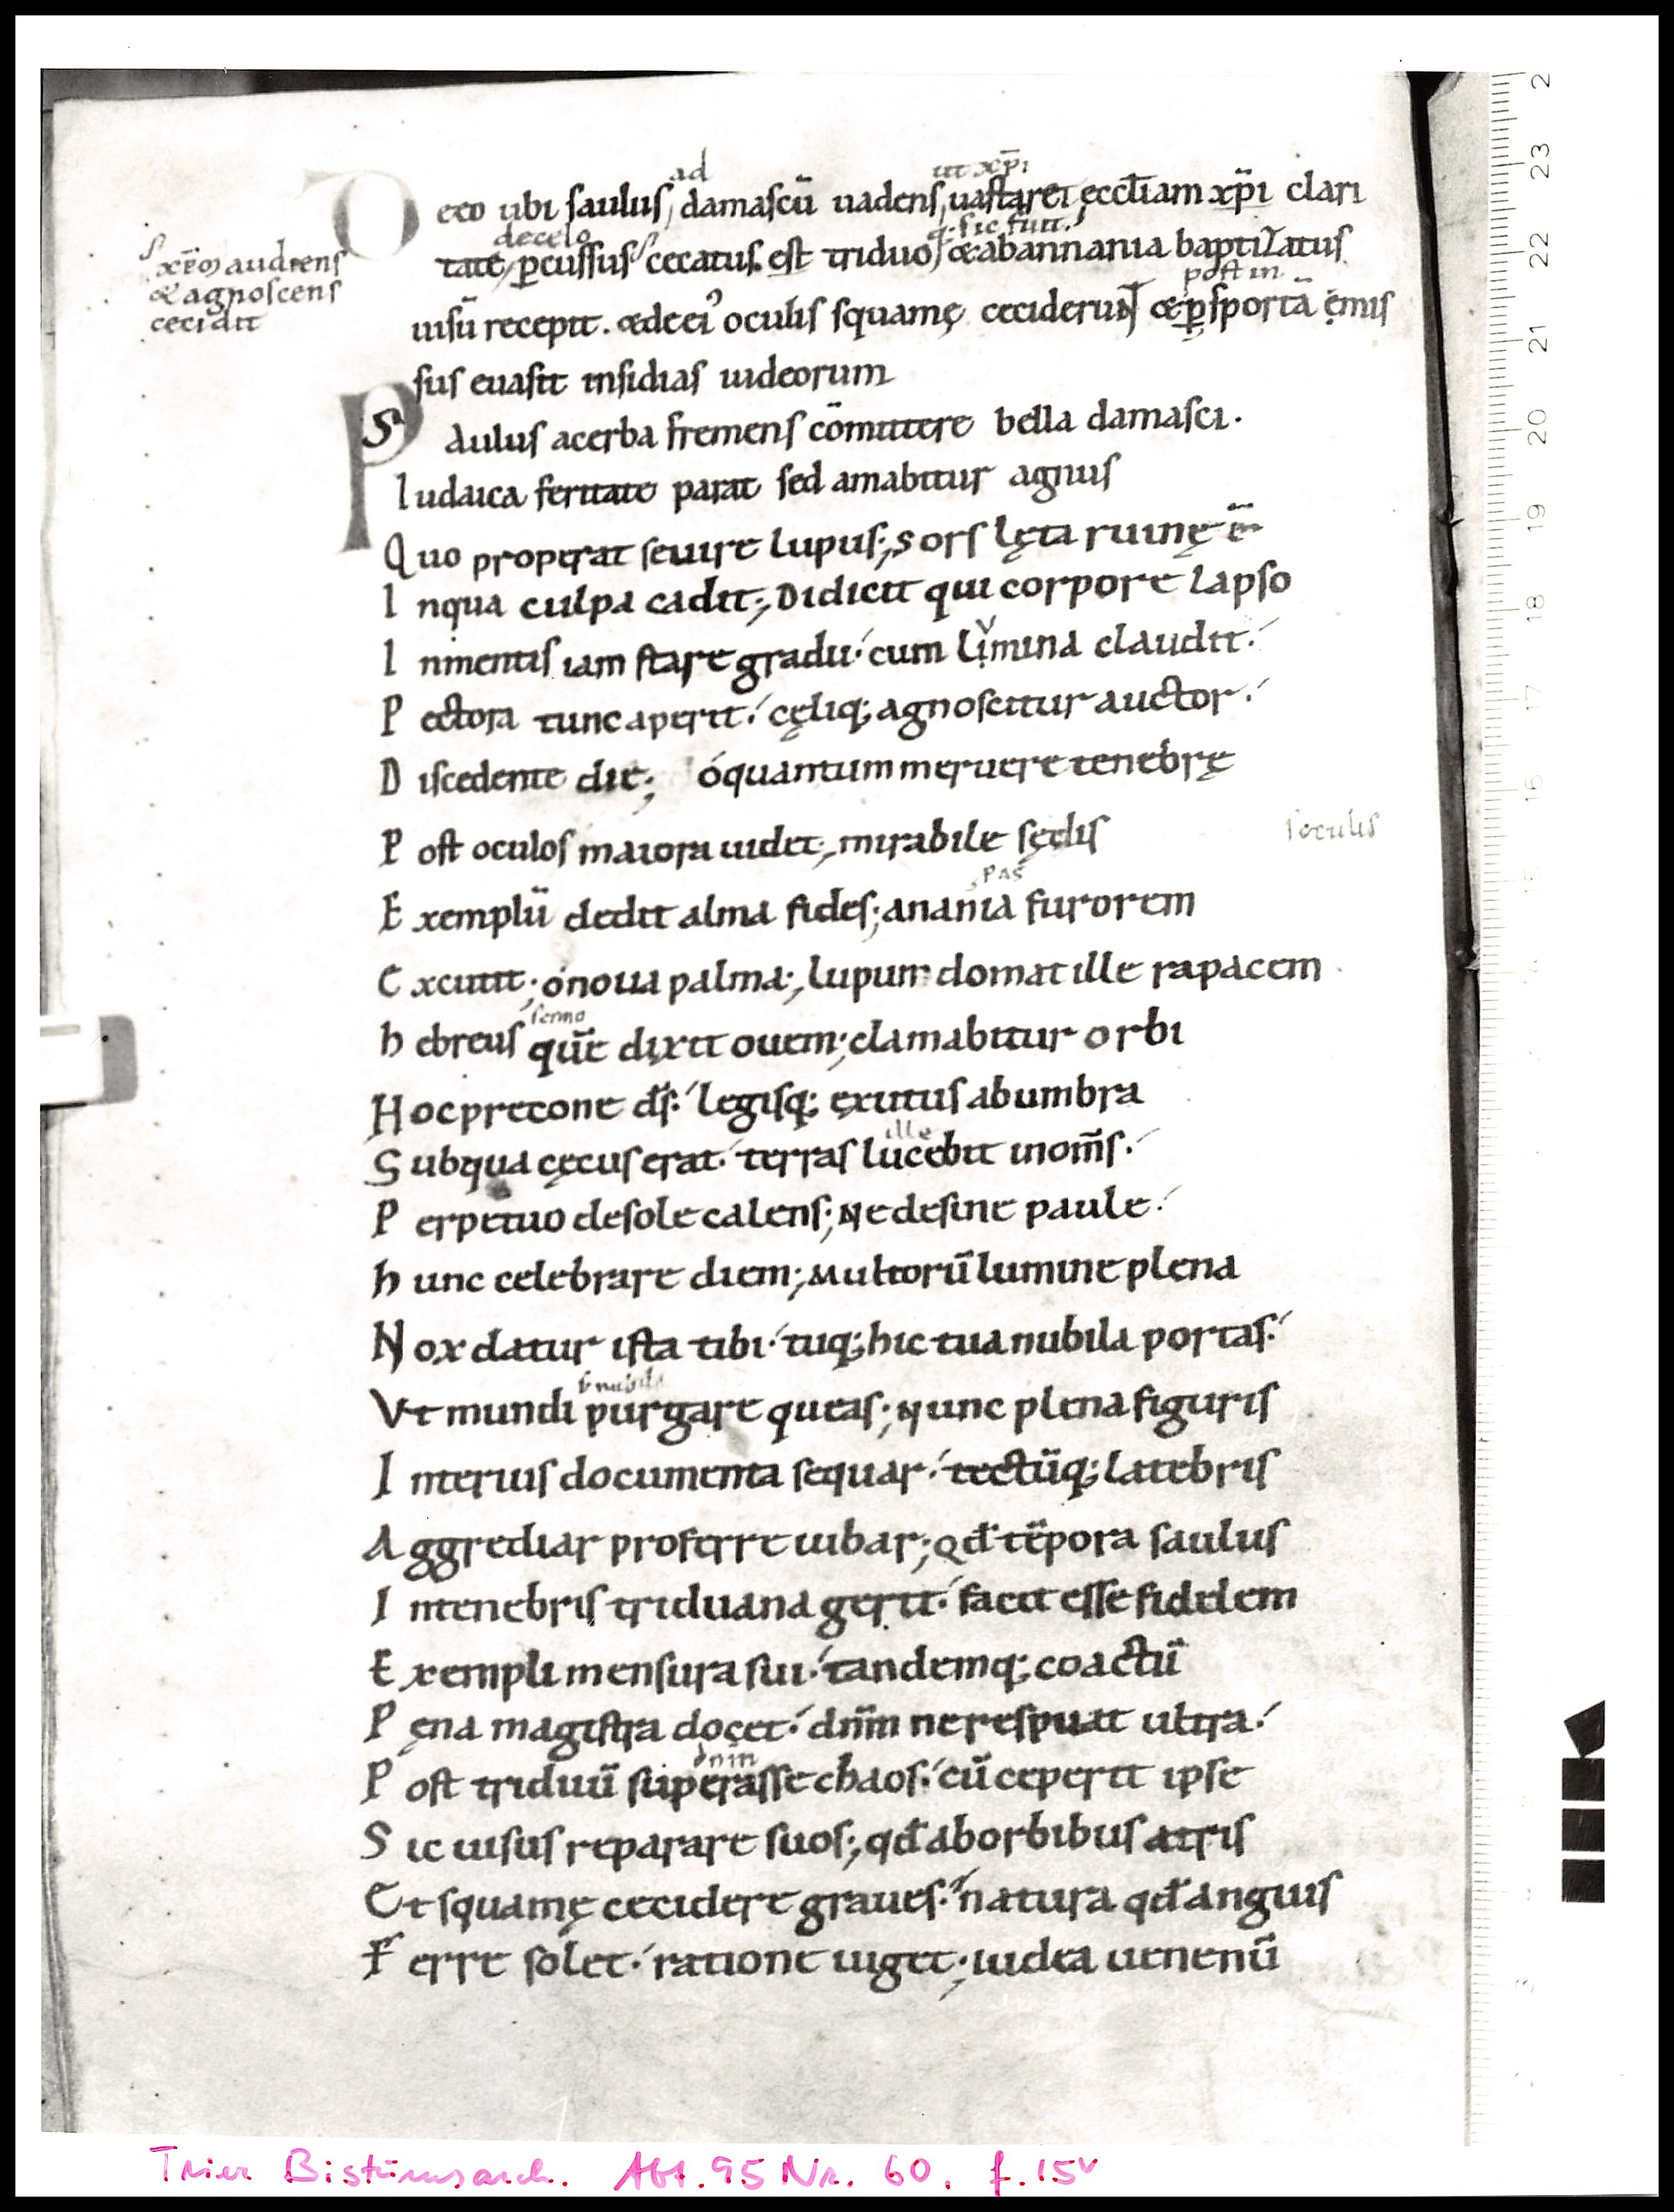 ad ut xp̄i
De eo ubi saulus damascū uadens uastare ęccl̄iam xp̄i clari
decelo
tate ꝑcussus cecatus est triduo & abannania baptizatus
xr̄m audiens
& agnoscens
cecidit
post in
uisū recepit. & de eiꝰ oculis squamę ceciderunt & ꝑ sportā ęmis
sus euasit insidias iudeorum
Paulus acerba fremens cōmittere bella damasci.
Iudaica feritate parat sed amabitur agnus
Quo properat seuire lupus; sors lęta ruinę ē
Inqua culpa cadit; Didicit qui corpore lapso
In mentis iam stare gradu. cum limina claudit.
Pectora tunc aperit. cęliq; agnoscitur auctor.
Discedente die; óquantum meruere tenebrę
Post oculos maiora uidet; mirabile sędis
oculis
Exemplū dedit alma fides; anania furorem
Excutit; ó noua palma; lupum domat ille rapacem
sermo
hebreus quē dixit ouem; clamabitur orbi
Hoc precone ds̄. legisq; exutus abumbra
ille
Subqua cęcus erat. terras lucebit inom̄s.
Perpetuo desole calens; Ne desine paule.
hunc celebrare diem; Multorū lumine plena
Nox datur ista tibi. tuq; hic tua nubila portas.
nubila
Vt mundi purgare queas; Nunc plena figuris
Interius documenta sequar. tectūq; latebris
Aggrediar proferre iubar; Qd̄ tēpora saulus
Intenebris triduana gerit. facit esse fidelem
Exempli mensura sui. tandemq; coactū
Pęna magistra docet. dn̄m ne respuat ultra.
dnm
Post triduū superasse chaos. cū ceperit ipse
Sic uisus reparare suos; qd̄ aborbibus atris
Et squamę cecidere graues. natura qd̄ anguis
Ferre solet. ratione uiget; iudea uenenū
Trier Bistumsarch. Abt. 95 Nr. 60. f. 15v
23
22
21
20
19
18
17
16